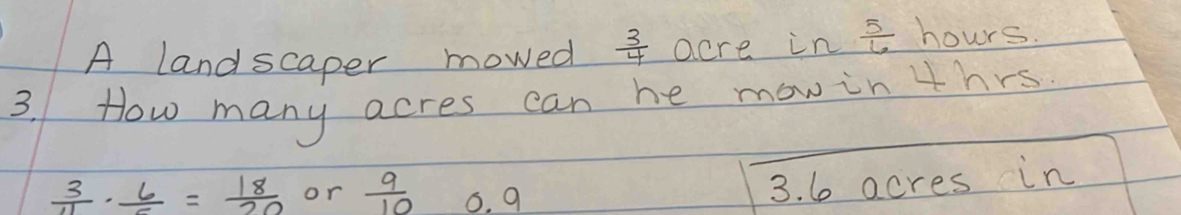 A landscaper mowed 3/4 acre in 5/6 hours.
3. How many acres can he mow in 4 hrs.
3/4 · 6/5 = 18/20 or 9/10 0.9 3.6 acres in